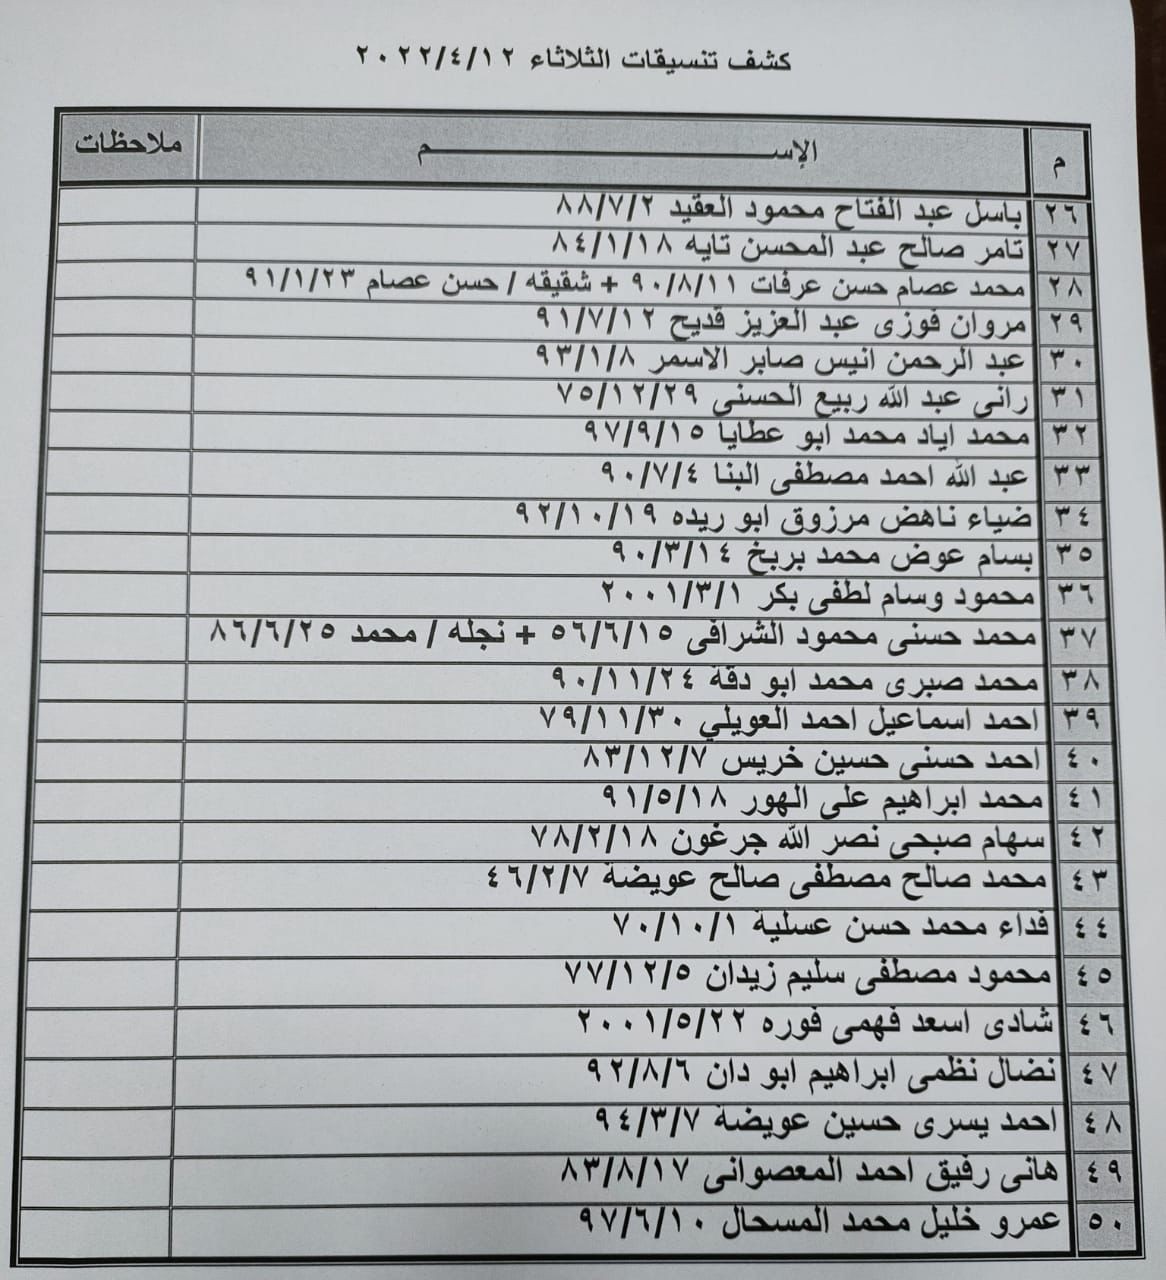 كشف تنسيقات الثلاثاء ٢٠٢٢/٤/١٢
م الإســـــــم ملاحظات
٢٦ باسل عبد الفتاح محمود العقيد ٨٨/٧/٢
٢٧ تامر صالح عبد المحسن تايه ٨٤/١/١٨
٢٨ محمد عصام حسن عرفات ٩٠/٨/١١ + شقيقه / حسن عصام ٩١/١/٢٣
٢٩ مروان فوزى عبد العزيز قديح ٩١/٧/١٢
٣٠ عبد الرحمن انيس صابر الاسمر ٩٣/١/٨
٣١ رانى عبد الله ربيع الحسنى ٧٥/١٢/٢٩
٣٢ محمد اياد محمد ابو عطايا ٩٧/٩/١٥
٣٣ عبد الله احمد مصطفى البنا ٩٠/٧/٤
٣٤ ضياء ناهض مرزوق ابو ريده ٩٢/١٠/١٩
٣٥ بسام عوض محمد بربخ ٩٠/٣/١٤
٣٦ محمود وسام لطفى بكر ٢٠٠١/٣/١
٣٧ محمد حسنى محمود الشرافى ٥٦/٦/١٥ + نجله / محمد ٨٦/٦/٢٥
٣٨ محمد صبرى محمد ابو دقة ٩٠/١١/٢٤
٣٩ احمد اسماعيل احمد العويلي ٧٩/١١/٣٠
٤٠ احمد حسنى حسين خريس ٨٣/١٢/٧
٤١ محمد ابراهيم على الهور ٩١/٥/١٨
٤٢ سهام صبحى نصر الله جرغون ٧٨/٢/١٨
٤٣ محمد صالح مصطفى صالح عويضة ٤٦/٢/٧
٤٤ فداء محمد حسن عسلية ٧٠/١٠/١
٤٥ محمود مصطفى سليم زيدان ٧٧/١٢/٥
٤٦ شادى اسعد فهمى فوره ٢٠٠١/٥/٢٢
٤٧ نضال نظمى ابراهيم ابو دان ٩٢/٨/٦
٤٨ احمد يسرى حسين عويضة ٩٤/٣/٧
٤٩ هانى رفيق احمد المعصوانى ٨٣/٨/١٧
٥٠ عمرو خليل محمد المسحال ٩٧/٦/١٠